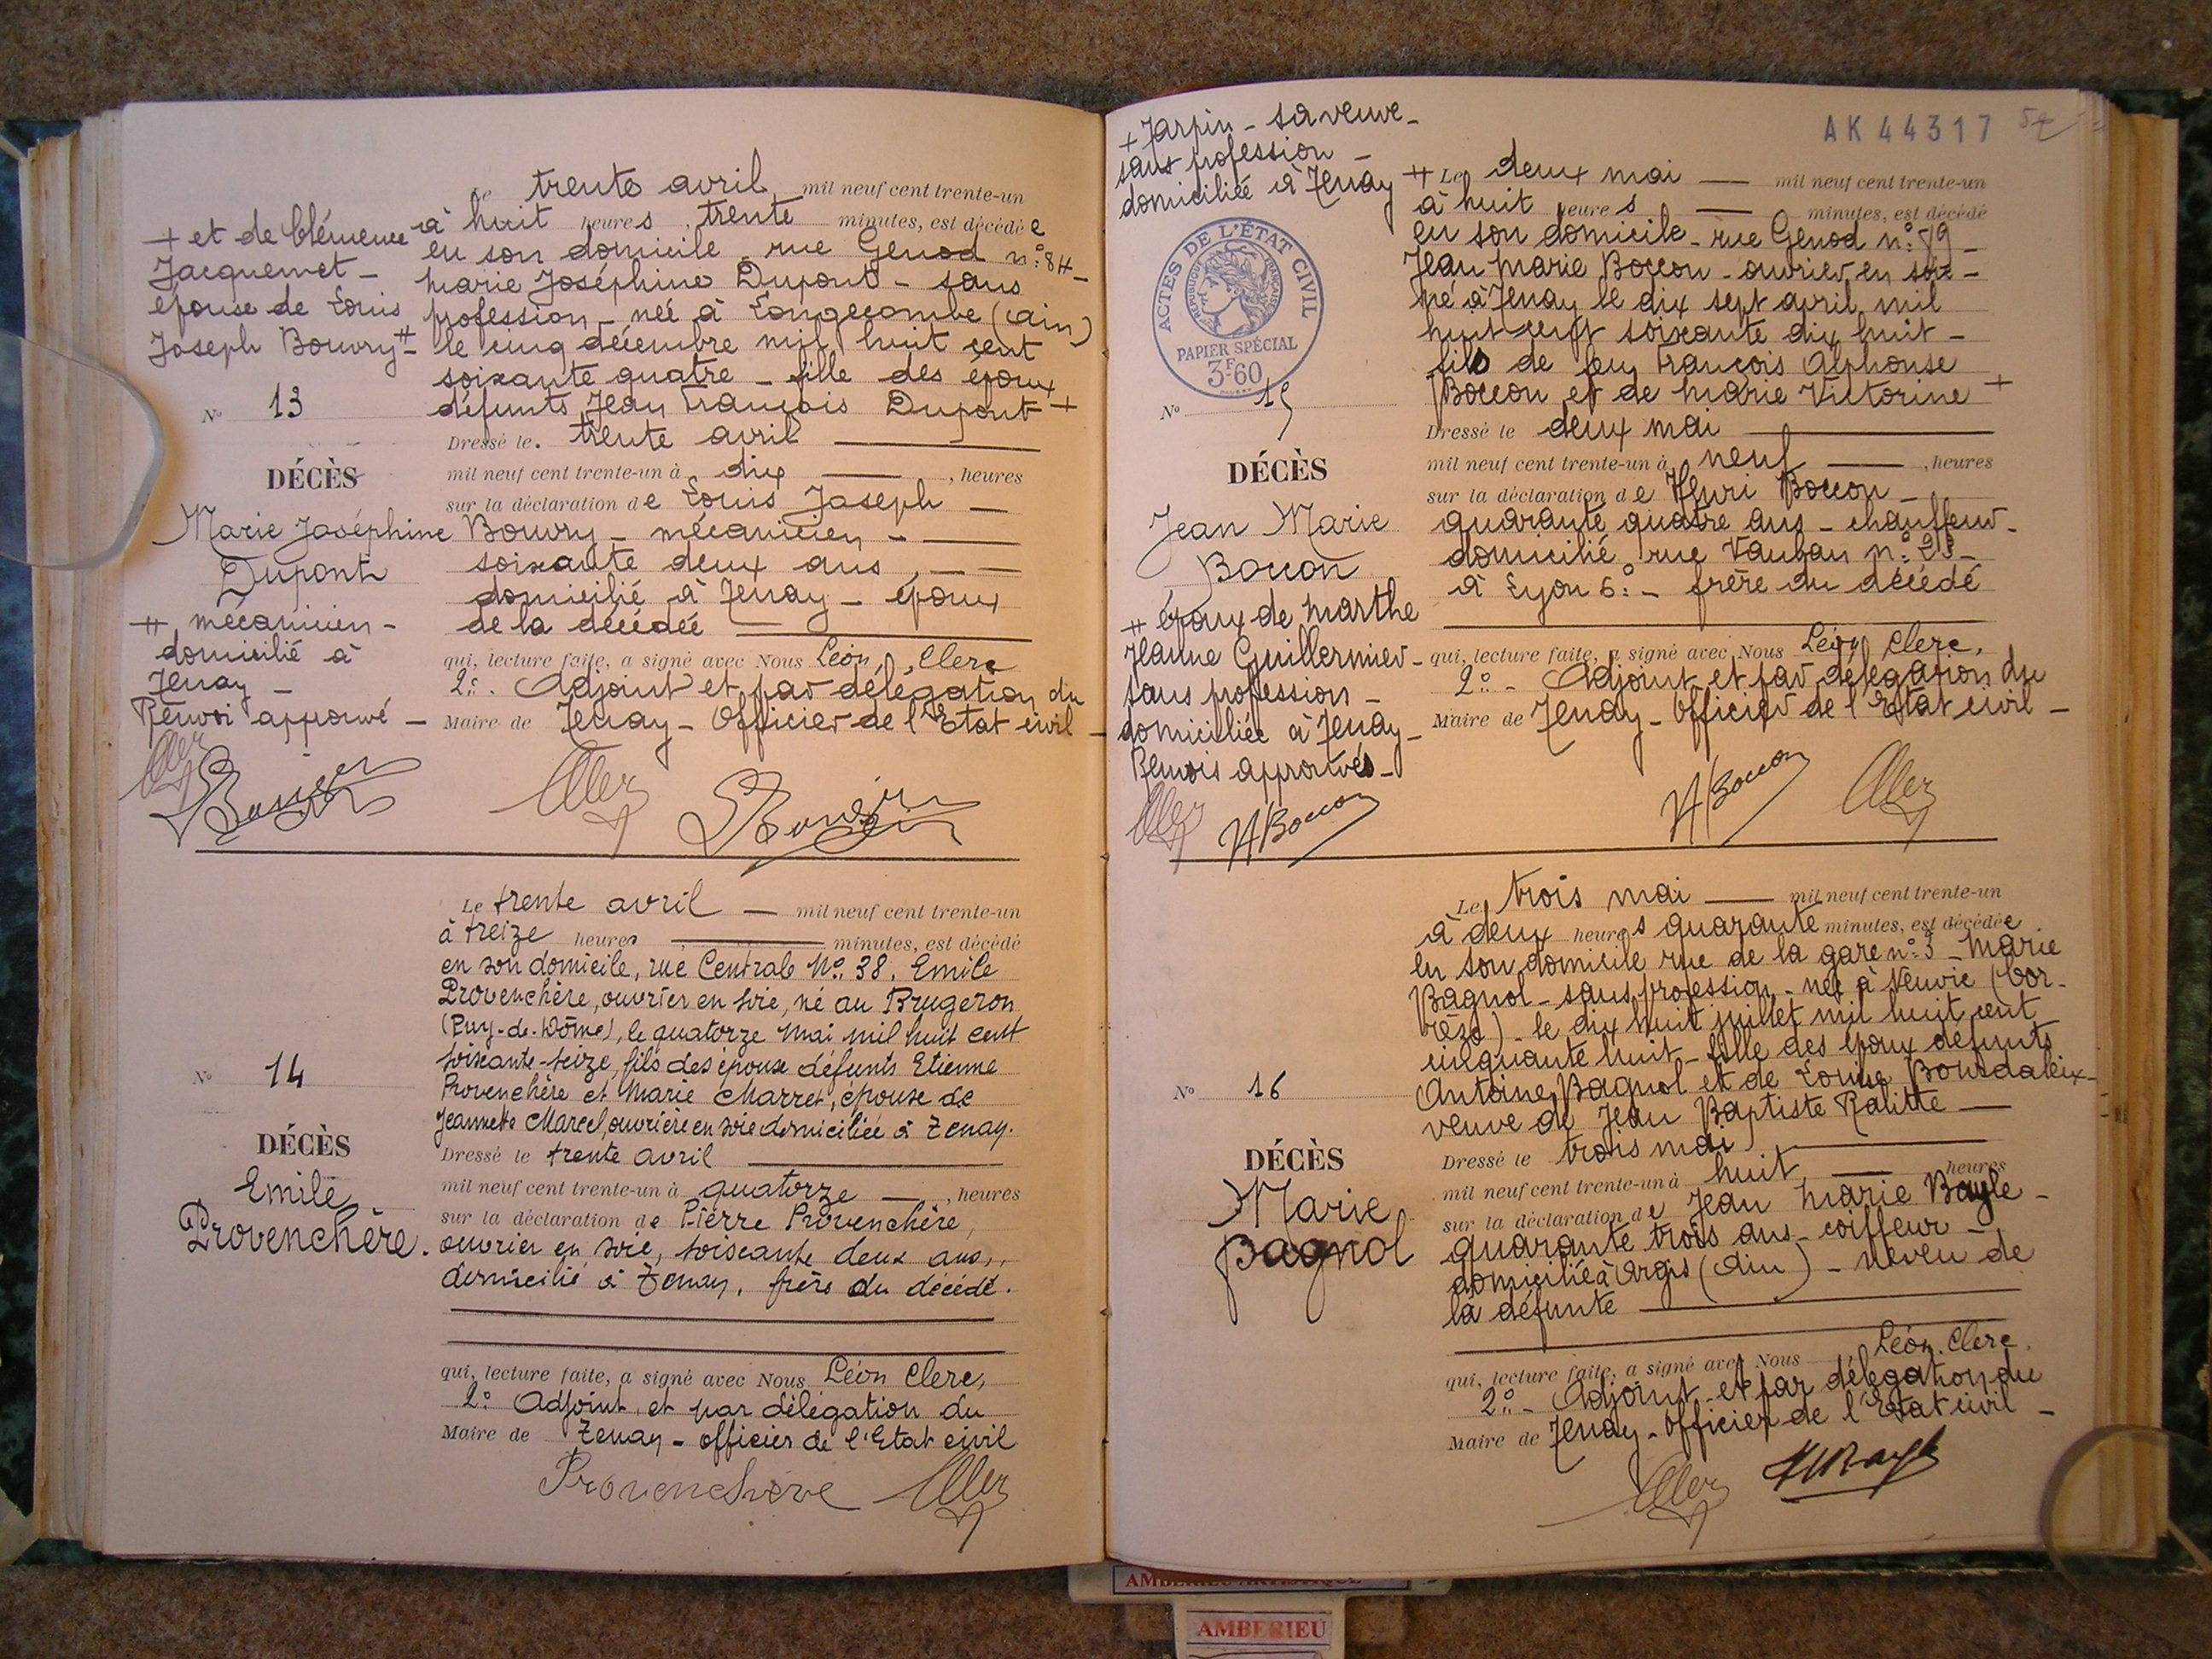 Le trente avril mil neuf cent trente-un
à huit heures, trente minutes, est décédée
en son domicile rue Genod n°: 84 -
Marie Joséphine Dupont - sans
profession - née à Longecombe (Ain)
le cinq décembre mil huit cent
soixante quatre - fille des époux
défunts Jean François Dupont +
+ et de Clémence
Jacquemet -
épouse de Louis
Joseph Bouvry #
N° 13
DÉCÈS
Marie Joséphine
Dupont
# mécanicien -
domicilié à
Tenay -
Renvoi approuvé -
Dressé le. trente avril
mil neuf cent trente-un à dix , heures
sur la déclaration de Louis Joseph -
Bouvry - mécanicien -
soixante deux ans, -
domicilié à Tenay - époux
de la décédée
qui, lecture faite, a signé avec Nous Léon Clerc
2°. Adjoint et par délégation du
Maire de Tenay - Officier de l'Etat civil -
Le trente avril - mil neuf cent trente-un
à treize heures minutes, est décédé
en son domicile, rue Centrale N°. 38, Emile
Provenchère, ouvrier en soie, né au Brugeron
(Puy-de-Dôme), le quatorze mai mil huit cent
soixante-seize, fils des époux défunts Etienne
Provenchère et Marie Marret, épouse de
Jeannette Marcel, ouvrière en soie domiciliée à Tenay.
N° 14
DÉCÈS
Emile
Provenchère.
Dressé le trente avril
mil neuf cent trente-un à quatorze - , heures
sur la déclaration de Pierre Provenchère,
ouvrier en soie, soixante deux ans,
domicilié à Tenay, frère du décédé.
qui, lecture faite, a signé avec Nous Léon Clerc,
2° Adjoint et par délégation du
Maire de Tenay - officier de l'Etat civil
Provenchère
AK 44317
+ Jarpin - sa veuve -
sans profession -
domiciliée à Tenay
# Le deux mai - mil neuf cent trente-un
à huit heures - minutes, est décédé
en son domicile - rue Genod n°: 79 -
Jean Marie Boccon - ouvrier en soie -
né à Tenay le dix sept avril mil
huit cent soixante dix huit -
fils de feu François Alphonse
Boccon et de Marie Victorine +
ACTES DE L'ÉTAT CIVIL
RÉPUBLIQUE FRANÇAISE
PAPIER SPÉCIAL
3F60
N° 15
DÉCÈS
Jean Marie
Boccon
# époux de Marthe
Jeanne Guillermier -
sans profession -
domiciliée à Tenay -
Renvois approuvés -
H Boccon
Dressé le deux mai
mil neuf cent trente-un à neuf , heures
sur la déclaration de Henri Boccon -
quarante quatre ans - chauffeur -
domicilié rue Vauban n°: 23 -
à Lyon 6° - frère du décédé
qui, lecture faite, a signé avec Nous Léon Clerc,
2° - Adjoint et par délégation du
Maire de Tenay - Officier de l'Etat civil -
H Boccon
Le trois mai mil neuf cent trente-un
à deux heures quarante minutes, est décédée
en son domicile rue de la gare n°: 3 - Marie
Bagnol - sans profession - née à Neuvic (Cor-
rèze) - le dix huit juillet mil huit cent
cinquante huit - fille des époux défunts
Antoine Bagnol et de Louise Bourdaleix -
veuve de Jean Baptiste Ralitte -
N° 16
DÉCÈS
Marie
Bagnol
Dressé le trois mai
mil neuf cent trente-un à huit heures
sur la déclaration de Jean Marie Bayle -
quarante trois ans - coiffeur -
domicilié à Argis (Ain) - neveu de
la défunte
qui, lecture faite, a signé avec Nous Léon Clerc,
2° - Adjoint et par délégation du
Maire de Tenay - Officier de l'Etat civil -
AMBERIEU ARTISTIQUE
AMBERIEU